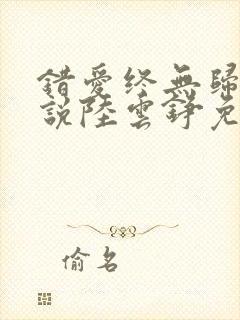 錯愛終無歸
說陸雲錚免
偷名